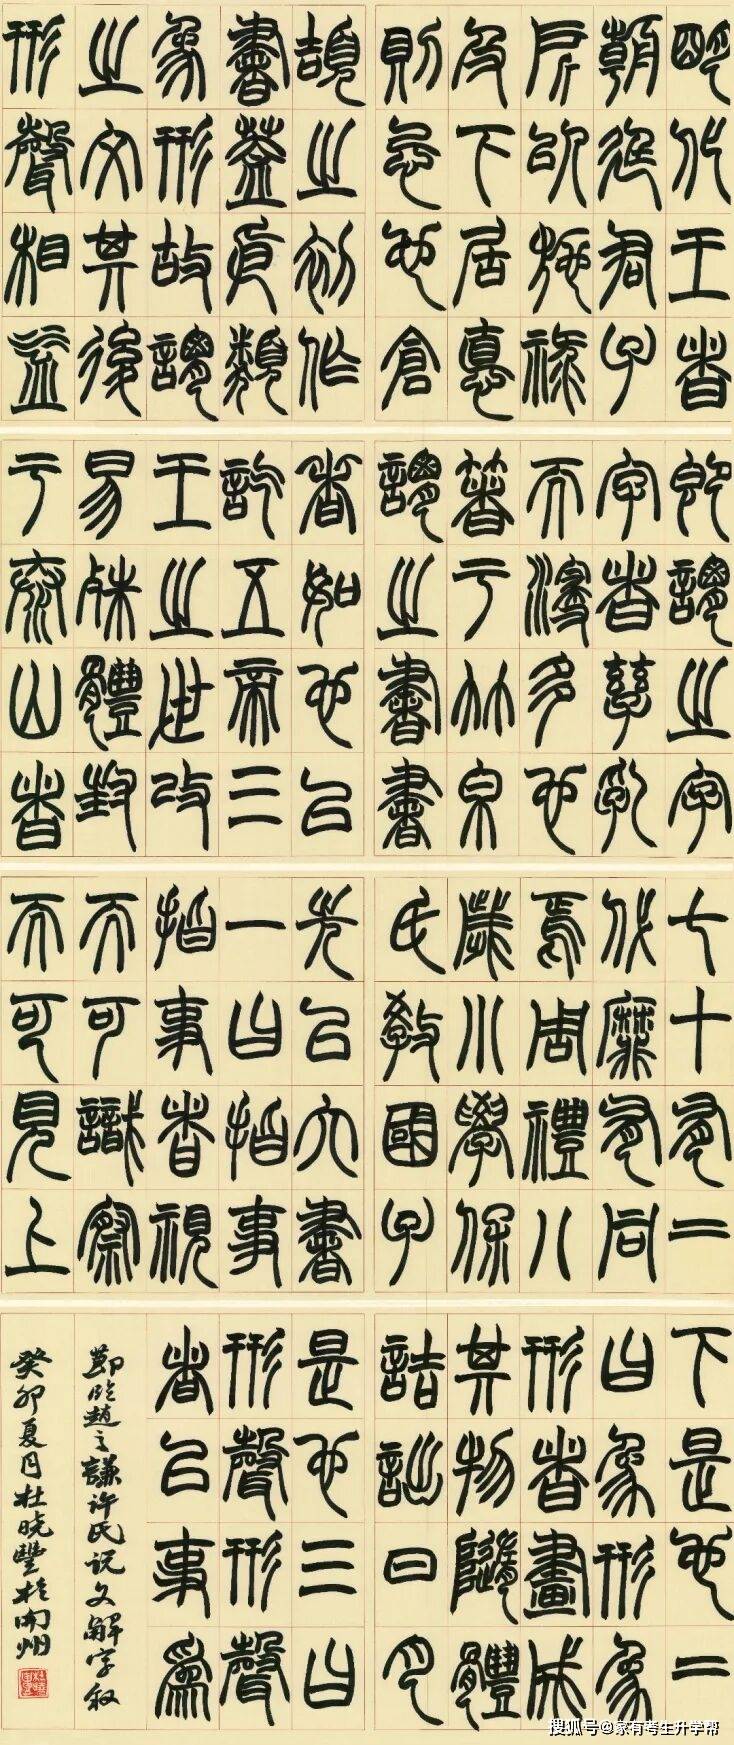 明化王者
朝廷君子
所以施祿
及下居德
則忌也倉
頡之初作
書蓋依類
象形故謂
之文其後
形聲相益
即謂之字
字者孳乳
而浸多也
箸于竹帛
謂之書書
者如也以
訖五帝三
王之世改
易殊體封
于泰山者
七十有二
代靡有同
焉周禮八
歲小學保
氏教國子
先以六書
一曰指事
指事者視
而可識察
而可見上
下是也二
曰象形象
形者畫成
其物隨體
詰詘日月
是也三曰
形聲形聲
者以事爲
節臨趙之謙许氏说文解字叙
癸卯夏月杜晓豐於開州
搜狐号@家有考生升学帮